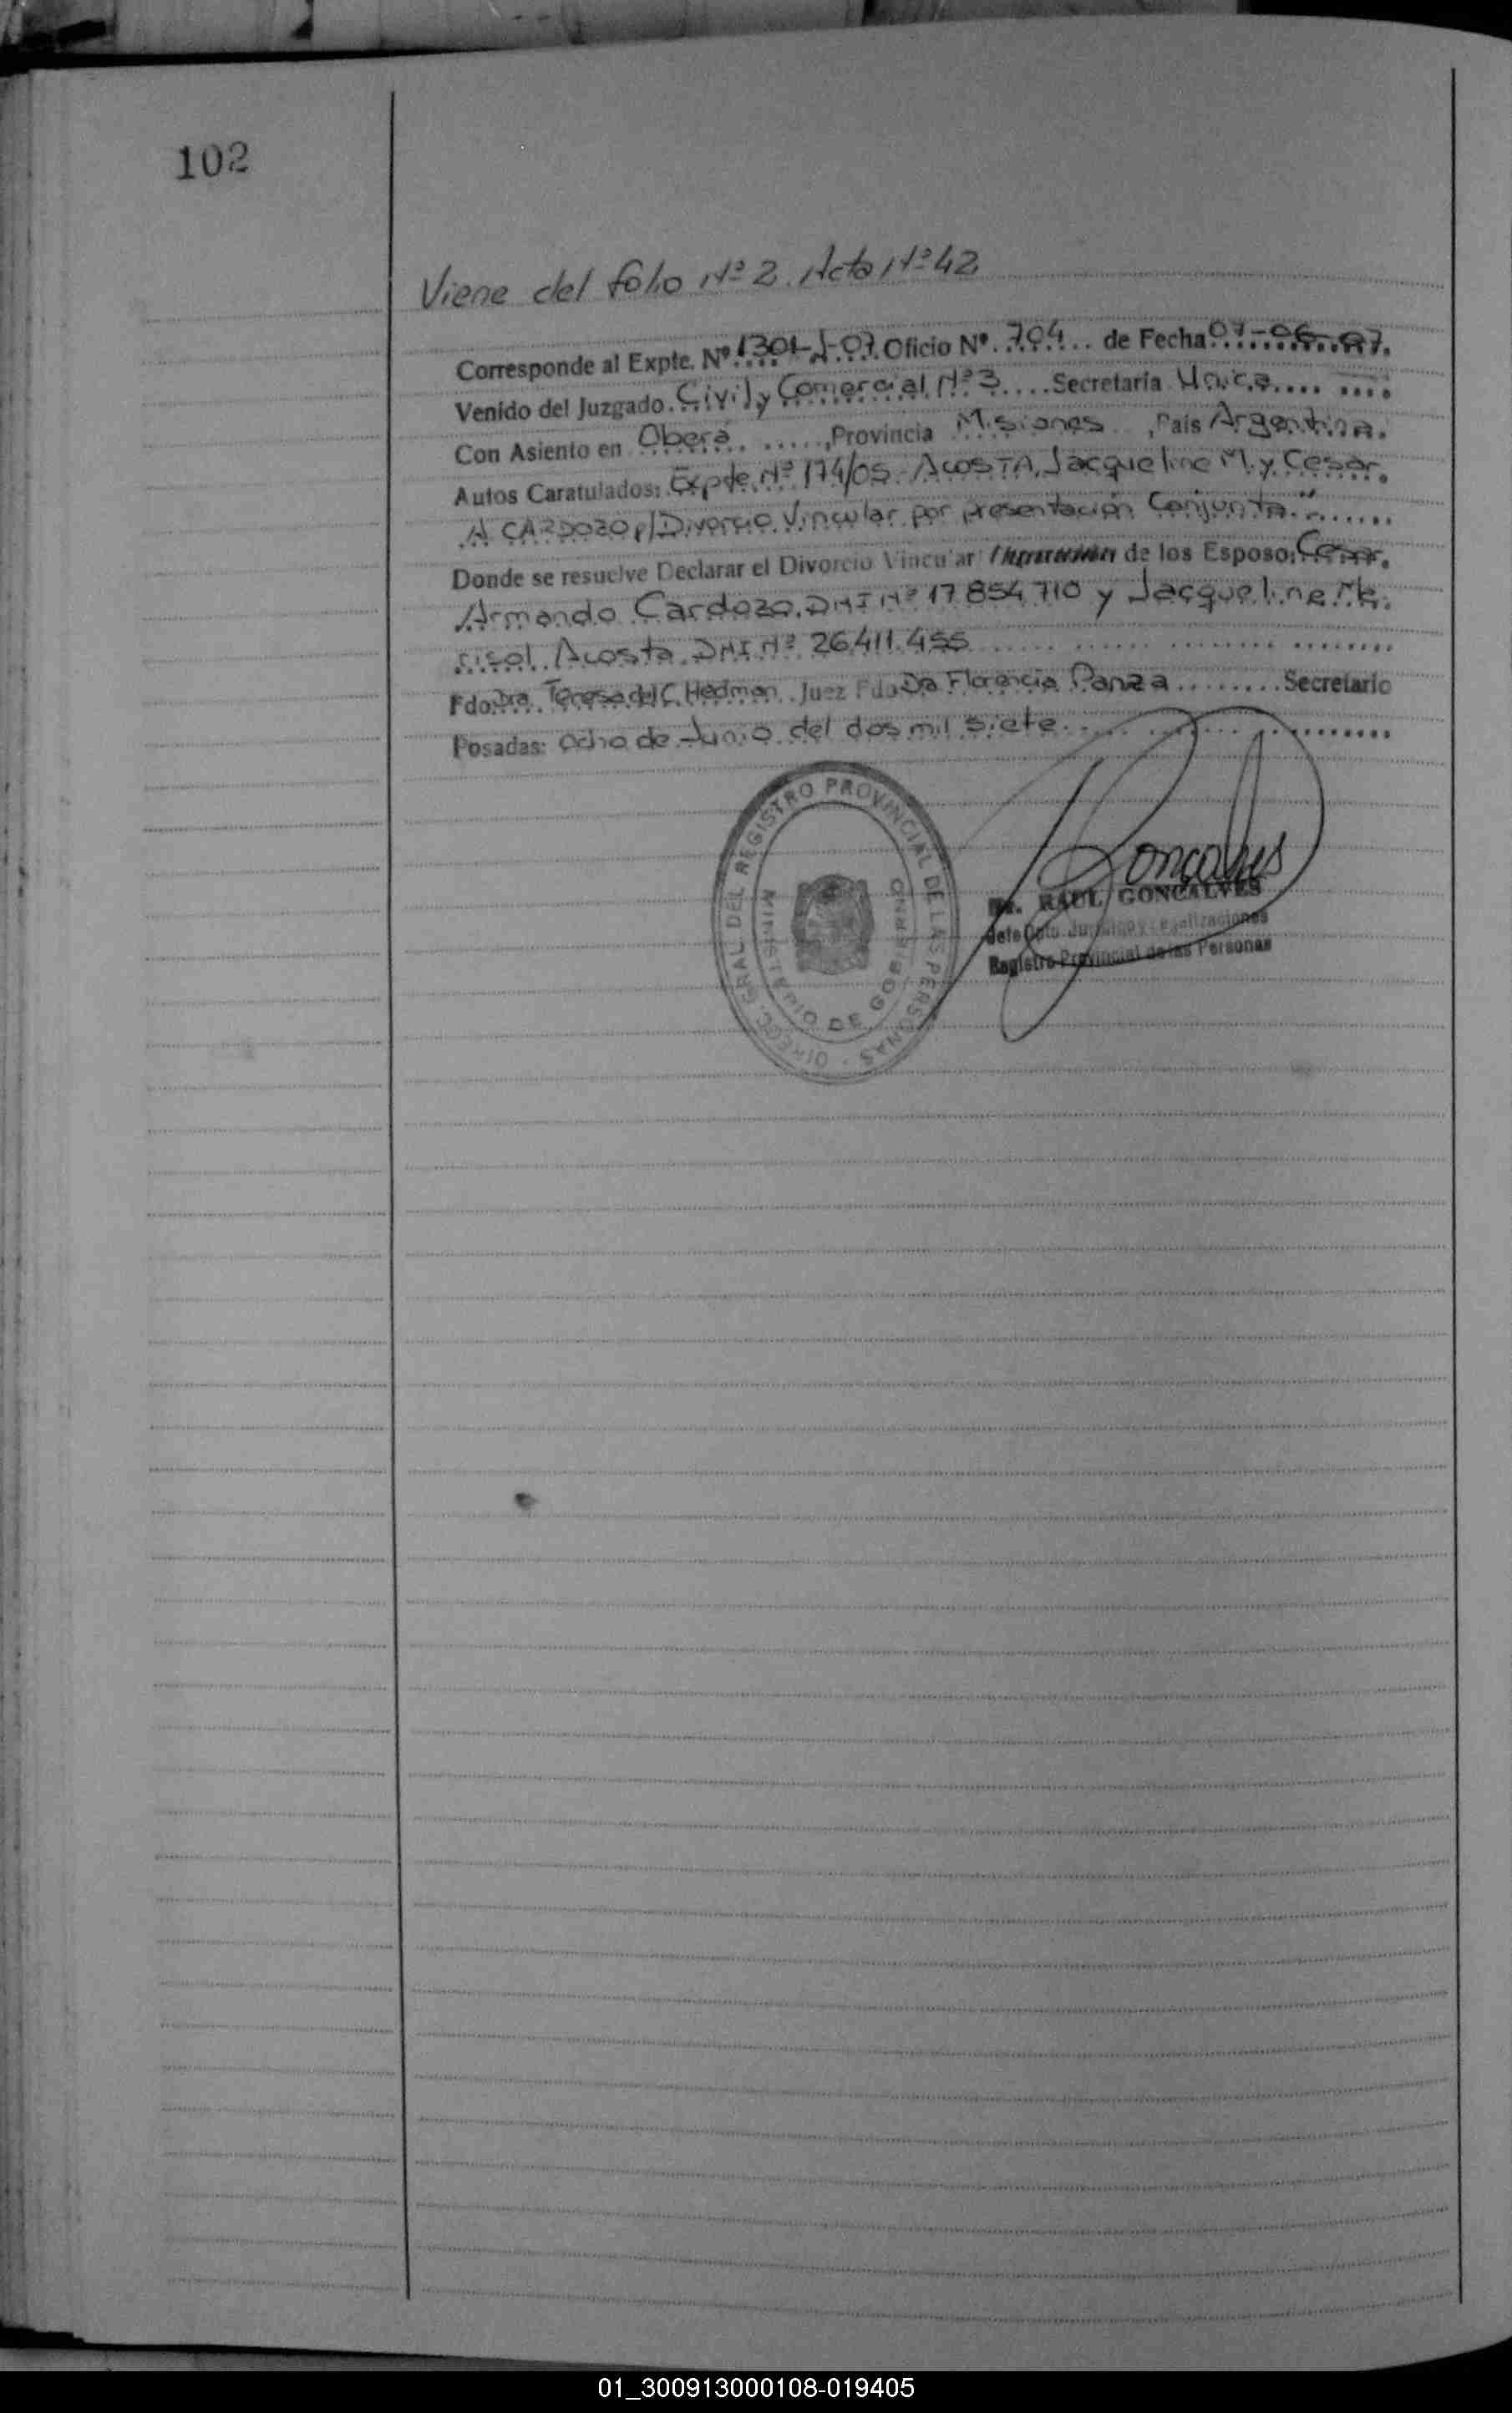 102
Viene del folio Nº 2. Acta Nº 42
Corresponde al Expte. Nº 1301-J-07. Oficio Nº 704 de Fecha 07-06-07.
Venido del Juzgado Civil y Comercial Nº 3 Secretaría Unica
Con Asiento en Oberá, Provincia Misiones, País Argentina.
Autos Caratulados: Expte. Nº 174/05 - ACOSTA, Jacqueline M. y Cesar.
A CARDOZO p/Divorcio Vincular por presentación Conjunta."
Donde se resuelve Declarar el Divorcio Vincular de los Esposo: Cesar.
Armando Cardozo. DNI Nº 17.854.710 y Jacqueline Ma.
risol Acosta. DNI Nº 26.411.455
Fdo: Dra. Teresa del C. Hedman. Juez Fdo Dra Florencia Panza Secretario
Posadas: ocho de Junio del dos mil siete.
DIRECC. GRAL. DEL REGISTRO PROVINCIAL DE LAS PERSONAS
MINISTERIO DE GOBIERNO
Goncalves
RAUL GONCALVES
Jefe Dpto. Jurídico y Legalizaciones
Registro Provincial de las Personas
01_300913000108-019405